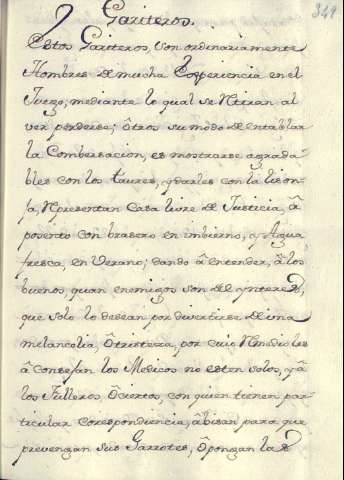 Gariteros.
349
Estos Gariteros, son ordinariamente
Hombres de mucha Experiencia en el
Juego, mediante lo qual se Retiran al
ver perderse; ôtros su modo de entablar
la Combersacion, es mostrarse agrada
bles con los taures, y darles con la lison
ja, Representan Casa livre de Justicia, â
posento con brasero en imbierno, y Agua
fresca, en Verano; dando â entender, â los
buenos, quan enemigos son de ynteres,
que solo lo desean por divertirse de una
melancolia, ô tristeza, por cuio Remedio les
â consejan los Medicos no esten solos, y â
los Fulleros, ô ciertos, con quien tienen par
ticular correspondiencia, âbisan para que
prevengan sus Garrotes, ô pongan la